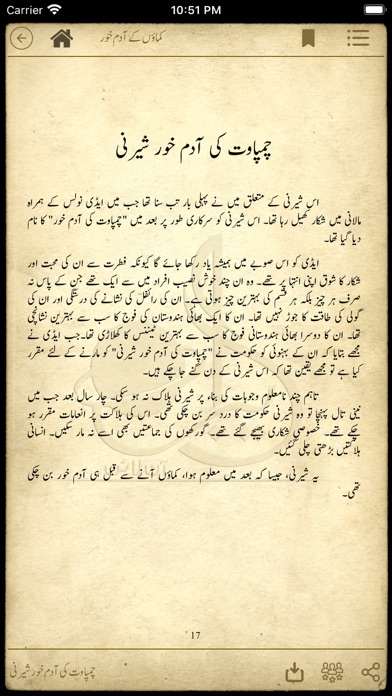 Carrier 10:51 PM
کماؤں کے آدم خور
چمپاوت کی آدم خور شیرنی
اس شیرنی کے متعلق میں نے پہلی بار تب سنا تھا جب میں ایڈی نولس کے ہمراہ
مالانی میں شکار کھیل رہا تھا۔ اس شیرنی کو سرکاری طور پر بعد میں "چمپاوت کی آدم خور" کا نام
دیا گیا تھا۔
ایڈی کو اس صوبے میں ہمیشہ یاد رکھا جائے گا کیونکہ فطرت سے ان کی محبت اور
شکار کا شوق اپنی انتہا پر تھے۔ وہ ان چند خوش نصیب افراد میں سے ایک تھے جن کے پاس نہ
صرف ہر چیز بلکہ ہر قسم کی بہترین چیز ہوتی ہے۔ ان کی رائفل کی نشانے کی درستگی اور ان کی
گولی کی طاقت کا جوڑ نہیں تھا۔ ان کا ایک بھائی ہندوستان کی فوج کا سب سے بہترین نشانچی
تھا۔ ان کا دوسرا بھائی ہندوستانی فوج کا سب سے بہترین ٹینس کا کھلاڑی تھا۔جب ایڈی نے
مجھے بتایا کہ ان کے بہنوئی کو حکومت نے "چمپاوت کی آدم خور شیرنی" کو مارنے کے لئے مقرر
کیا ہے تو مجھے یقین تھا کہ اس شیرنی کے دن گنے جا چکے ہیں۔
تاہم چند نامعلوم وجوہات کی بناء پر شیرنی ہلاک نہ ہو سکی۔ چار سال بعد جب میں
نینی تال پہنچا تو وہ شیرنی حکومت کا درد سر بن چکی تھی۔ اس کی ہلاکت پر انعامات مقرر ہو
چکے تھے۔ خصوصی شکاری بھیجے گئے تھے۔ گورکھوں کی جماعتیں بھی اسے نہ مار سکیں۔ انسانی
ہلاکتیں بڑھتی چلی گئیں۔
یہ شیرنی، جیسا کہ بعد میں معلوم ہوا، کماؤں آنے سے قبل ہی آدم خور بن چکی
تھی۔
17
چمپاوت کی آدم خور شیرنی